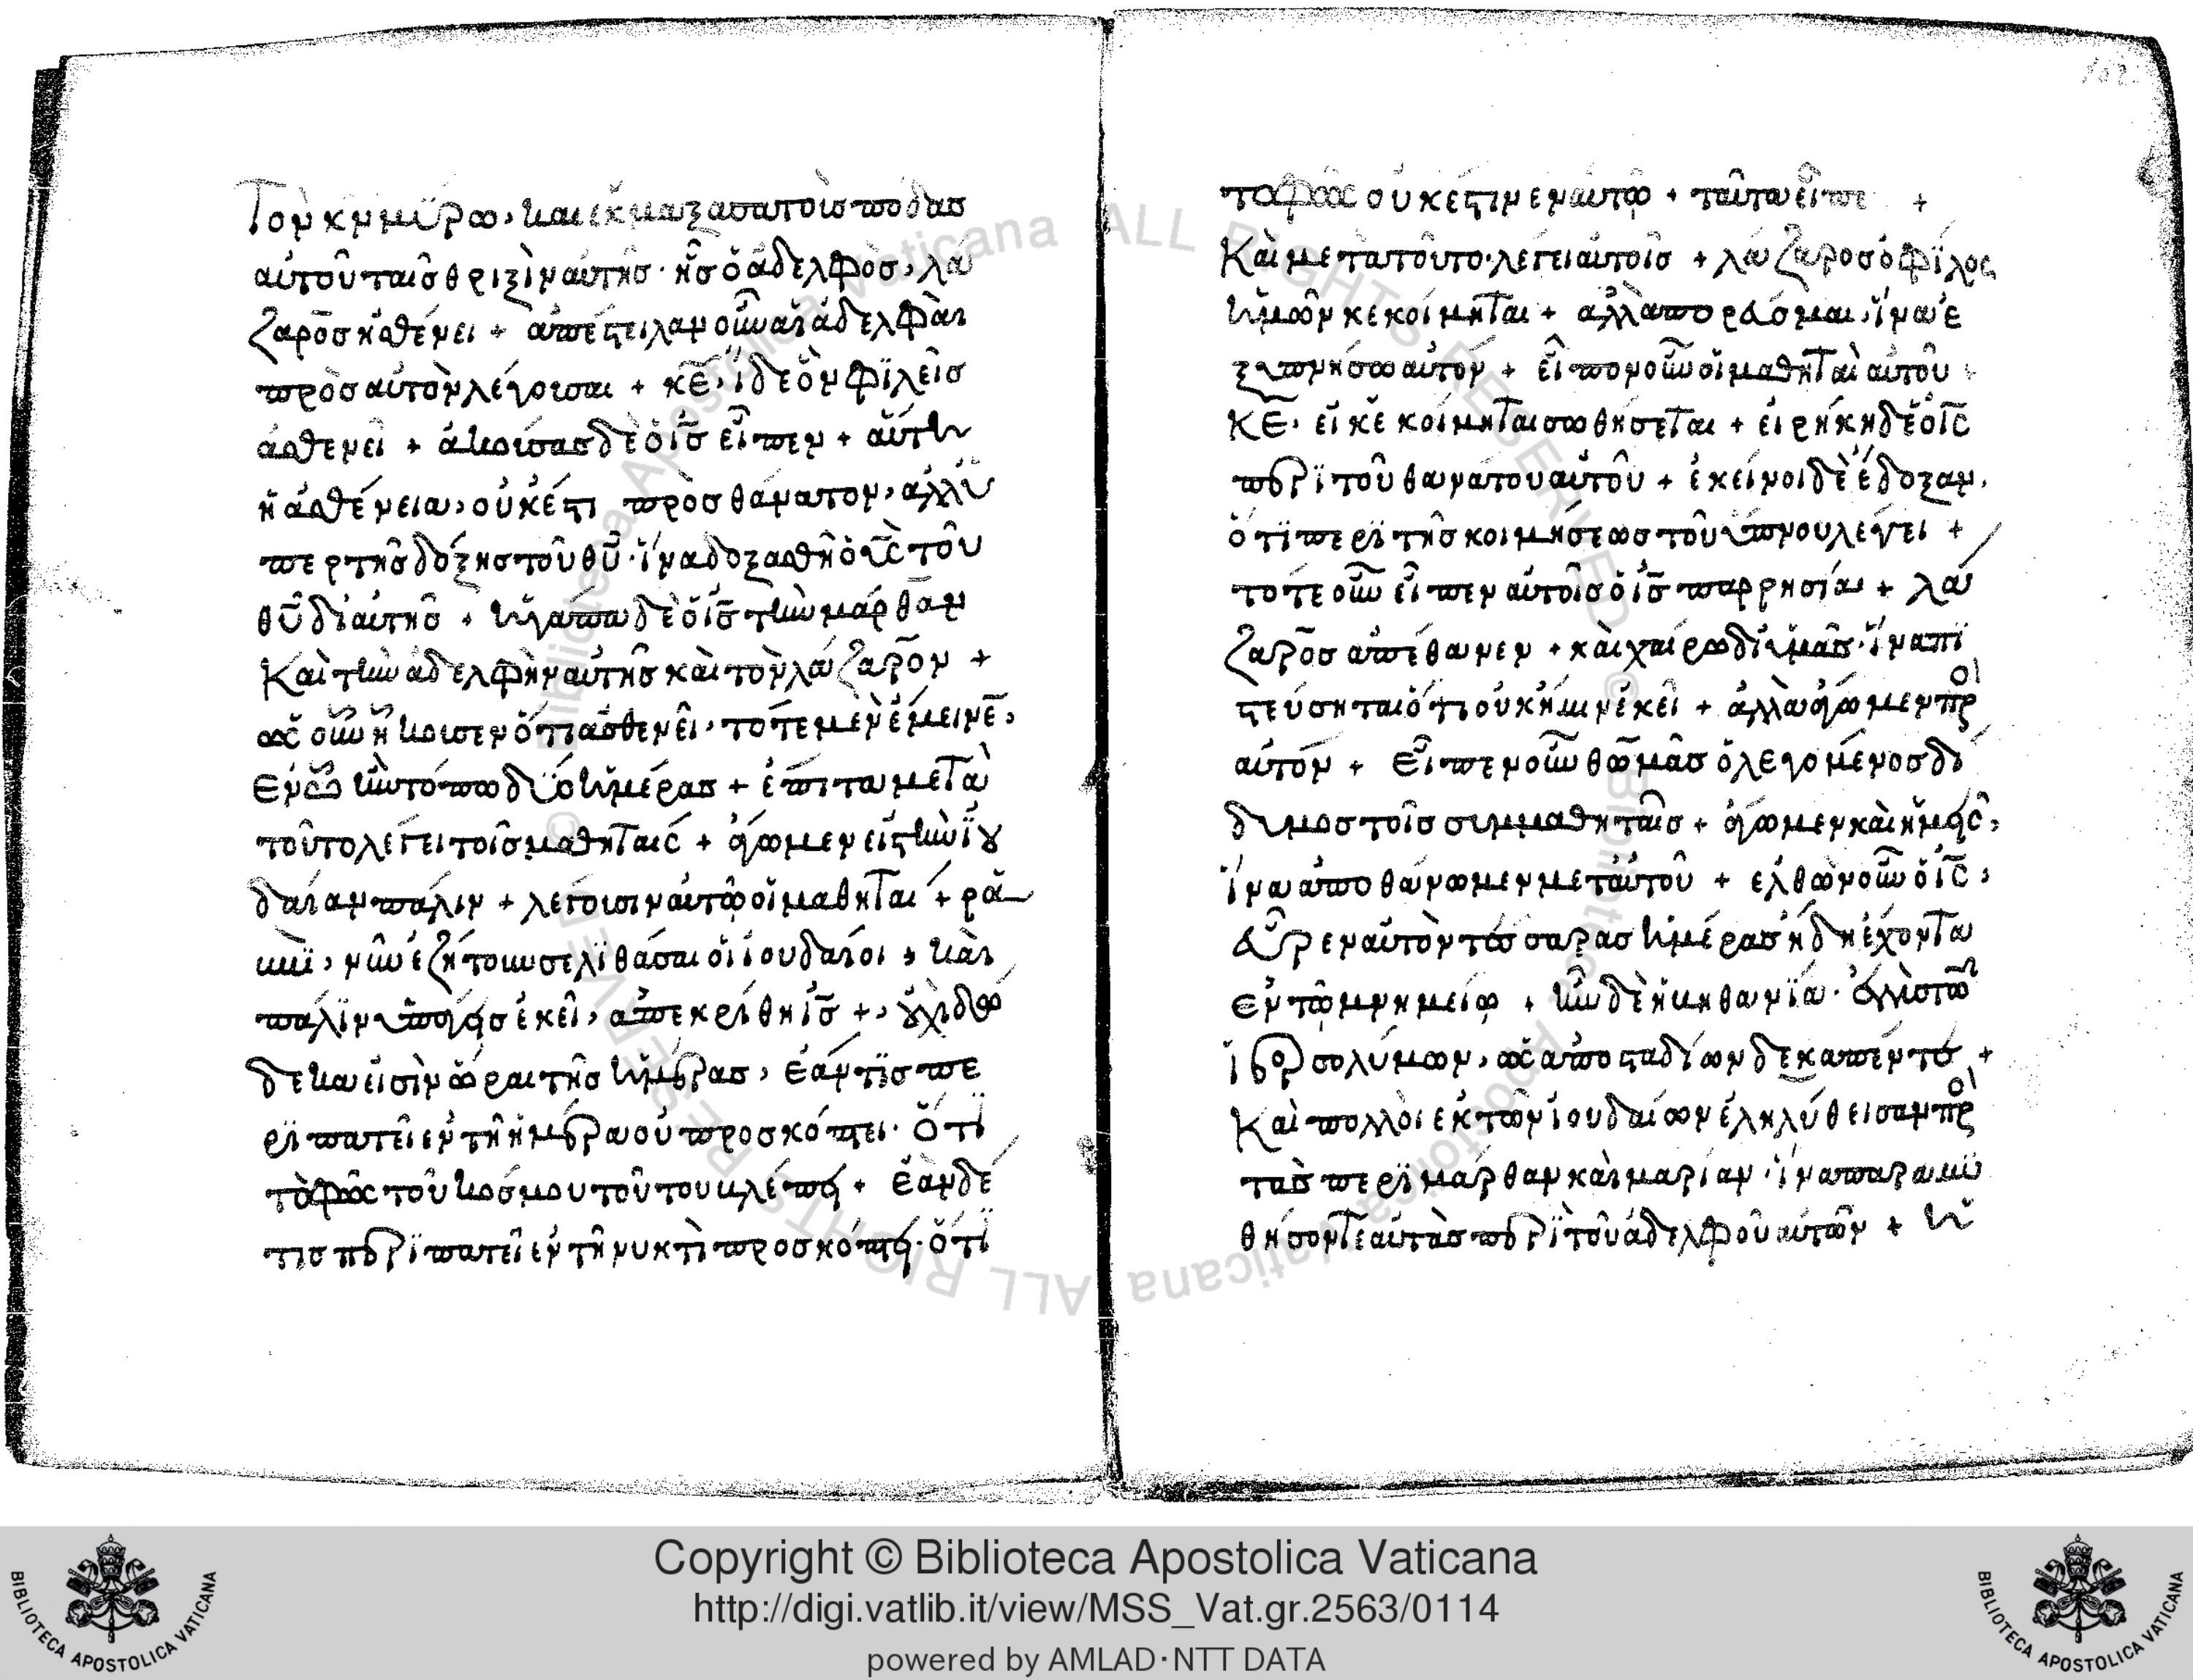 Τὸν κν μύρω, και ἐκμαξασα τοὺσ πόδασ
αὐτοῦ ταῖσ θριξὶν αὐτῆσ · ἧσ ὁ ἀδελφὸσ, λά
ζαροσ ἠσθένει + ἀπέστειλαν οὖν αἱ ἀδελφαὶ
πρὸσ αὐτὸν λέγουσαι + κε, ἴδε ὃν φϊλεῖσ
ἀσθενεῖ + ἀκούσασ δὲ ὁ ισ εἶπεν + αὕτη
ἡ ἀσθένεια, οὐκέτι πρὸσ θάνατον, ἀλλ ὺ
περ τῆσ δόξησ τοῦ θυ · ἵνα δοξασθῆ ὁ υσ τοῦ
θυ δι αὐτῆσ + ἠγάπα δὲ ὁ ισ τὴν μάρθαν
Καὶ τὴν ἀδελφὴν αὐτῆσ καὶ τὸν λάζαρον +
ὡσ οὖν ἤκουσεν ὅτι ἀσθενεῖ, τότε μὲν ἔμεινε,
Εν ὧ ἦν τόπω δϋο ἡμέρασ + ἔπιτα μετὰ
τοῦτο λέγει τοῖσ μαθηταῖς + ἄγωμεν εἰς τὴν ϊου
δαίαν πάλιν + λέγουσιν αὐτῶ οἱ μαθηταί + ρα
μβϊ, νῦν ἐζήτουν σε λϊθάσαι οἱ ἰουδαίοι, καὶ
πάλϊν ὑπάγεισ ἐκεῖ, ἀπεκρίθη ισ +, οὐχὶ δώ
δεκα εἰσὶν ὧραι τῆσ ἡμέρασ, ἐάν τϊσ πε
ρϊπατεῖ ἐν τῆ ἡμέρα οὐ προσκόπτει · ὅτϊ
τὸ φῶς τοῦ κόσμου τοῦτου βλέπει + ἐὰν δέ
τισ περϊπατεῖ ἐν τῆ νυκτὶ προσκόπτει · ὅτϊ
το φῶς οὐκ ἔστιν ἐν αὐτῶ + ταῦτα εἶπε +
Καὶ μετὰ τοῦτο · λέγει αὐτοῖσ + λάζαροσ ὁ φϊλος
ἡμῶν κεκοίμηται + ἀλλὰ πορεύομαι, ἵνα ἐ
ξυπνήσω αὐτόν + εἶπον οὖν οἱ μαθηταὶ αὐτοῦ
ΚΕ, εἰ κε κοίμηται σωθήσεται + εἰρήκη δὲ ὁ ις
περϊ τοῦ θανάτου αὐτοῦ + ἐκείνοι δὲ ἔδοξαν,
ὅτϊ περϊ τῆσ κοιμήσεωσ τοῦ ὕπνου λέγει +
τότε οὖν εἶπεν αὐτοῖσ ὁ ισ παρρησία + λά
ζαροσ ἀπέθανεν + καὶ χαίρω δι ὑμᾶσ · ἵνα πϊ
στεύσηται ὅτι οὐκ ἤμιν ἐκεῖ + ἀλλὰ ἄγωμεν πρ
αὐτόν + εἶπεν οὖν θωμᾶσ ὁ λεγομένοσ δί
δυμοσ τοῖσ συμμαθηταῖσ + ἄγωμεν καὶ ἡμεῖς,
ἵνα ἀποθάνωμεν μετ αὐτοῦ + ἐλθὼν οὖν ὁ ις,
εὗρεν αὐτὸν τέσσαρασ ἡμέρασ ἤδη ἔχοντα
ἐν τῶ μνημείω + ἦν δὲ ἡ βηθανϊα · ἐγγὺσ τῶ
ἱεροσολύμων, ὡσ ἀπὸ σταδίων δεκαπέντε +
Καὶ πολλοὶ ἐκ τῶν ἰουδαίων ἐληλύθεισαν πρ
τὰσ περϊ μάρθαν καὶ μαρίαν · ἵνα παραμϋ
θήσοντε αὐτὰσ περϊ τοῦ ἀδελφοῦ αὐτῶν + ἡ
Copyright © Biblioteca Apostolica Vaticana
http://digi.vatlib.it/view/MSS_Vat.gr.2563/0114
powered by AMLAD·NTT DATA
BIBLIOTECA APOSTOLICA VATICANA
BIBLIOTECA APOSTOLICA VATICANA